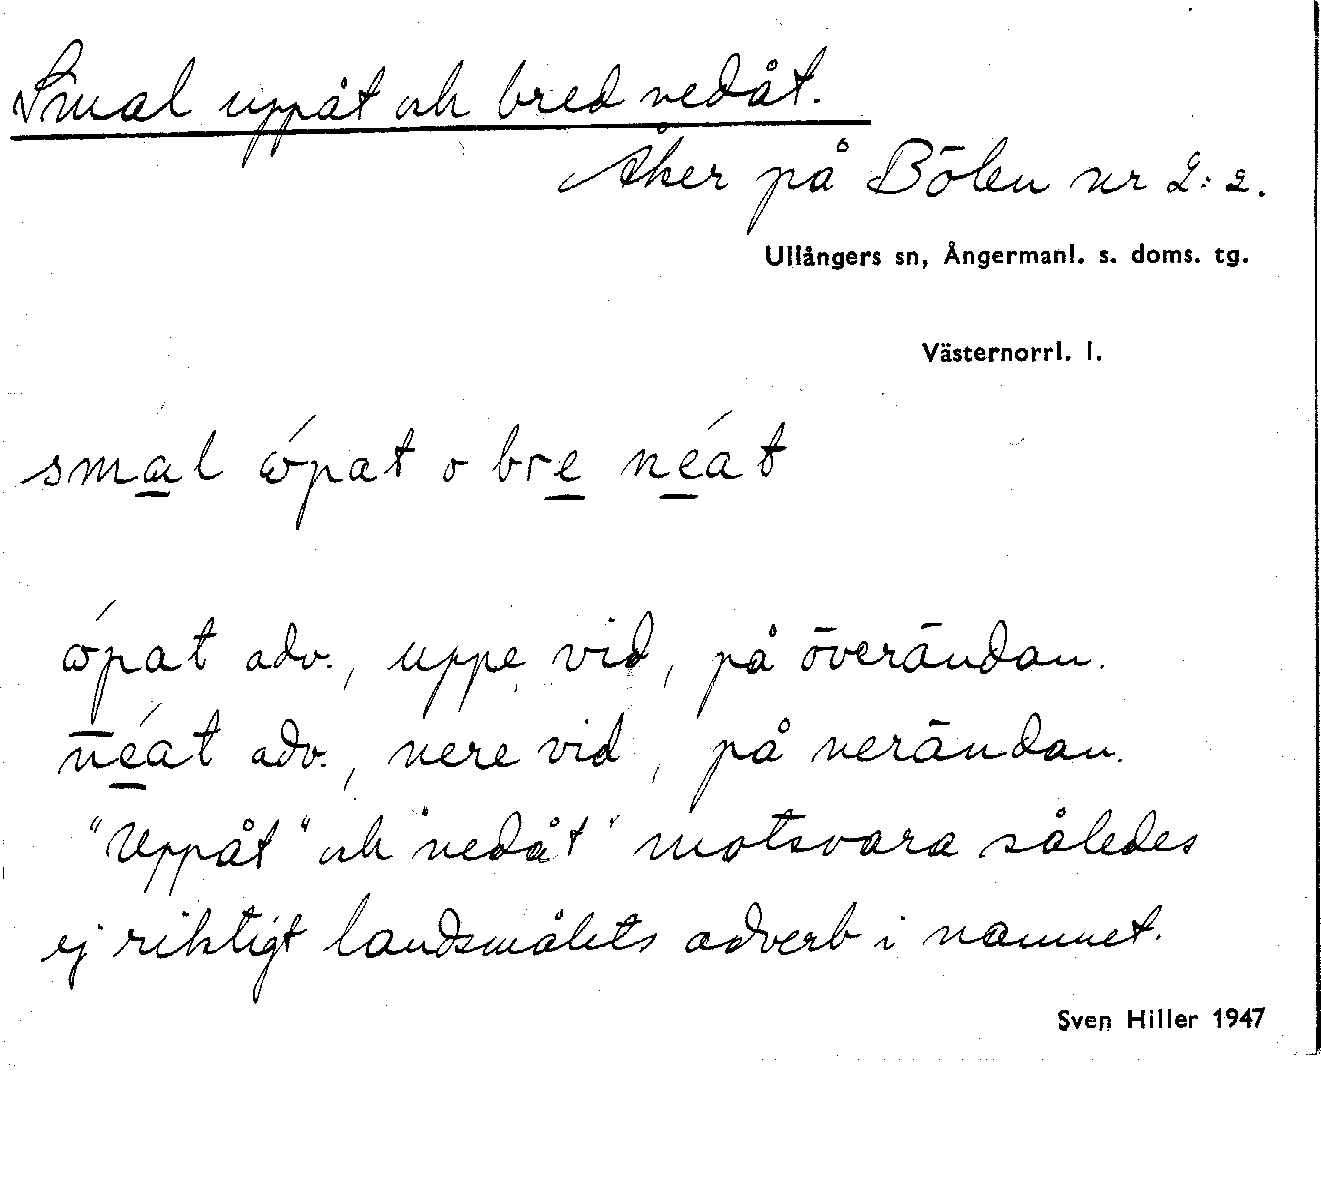 Smal uppåt och bred nedåt.
Åker på Bölen nr 2:2.
Ullångers sn, Ångermanl. s. doms. tg.
Västernorrl. l.
sma̲l ώpat o bre̲ né̲at
ώpat adv., uppe vid, på överändan.
né̲at adv., nere vid, på nerändan.
"Uppåt" och "nedåt" motsvara således
ej riktigt landsmålets adverb i namnet.
Sven Hiller 1947